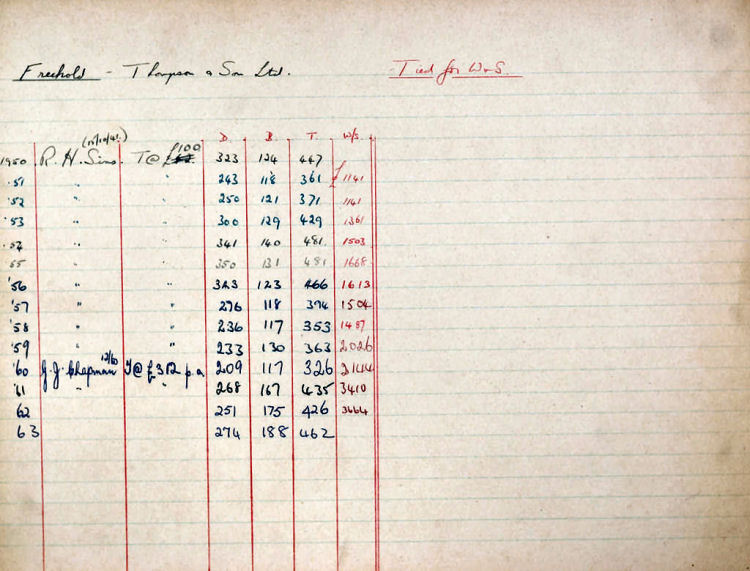 Freehold - Thompson & Son Ltd. Tied for W&S.
D. B. T. W/S.
1950 R. H. Sims. T@ £100 323 124 447
'51 " " 243 118 361 £1141
'52 " " 250 121 371 1141
'53 " " 300 129 429 1361
'54 " " 341 140 481 1503
'55 " " 350 131 481 1668
'56 " " 343 123 466 1613
'57 " " 276 118 394 1504
'58 " " 236 117 353 1487
'59 " " 233 130 363 2026
'60 G. J. Chapman 12/60 T@ £312 p.a 209 117 326 2144
'61 " 268 167 435 3410
62 251 175 426 3664
63 274 188 462